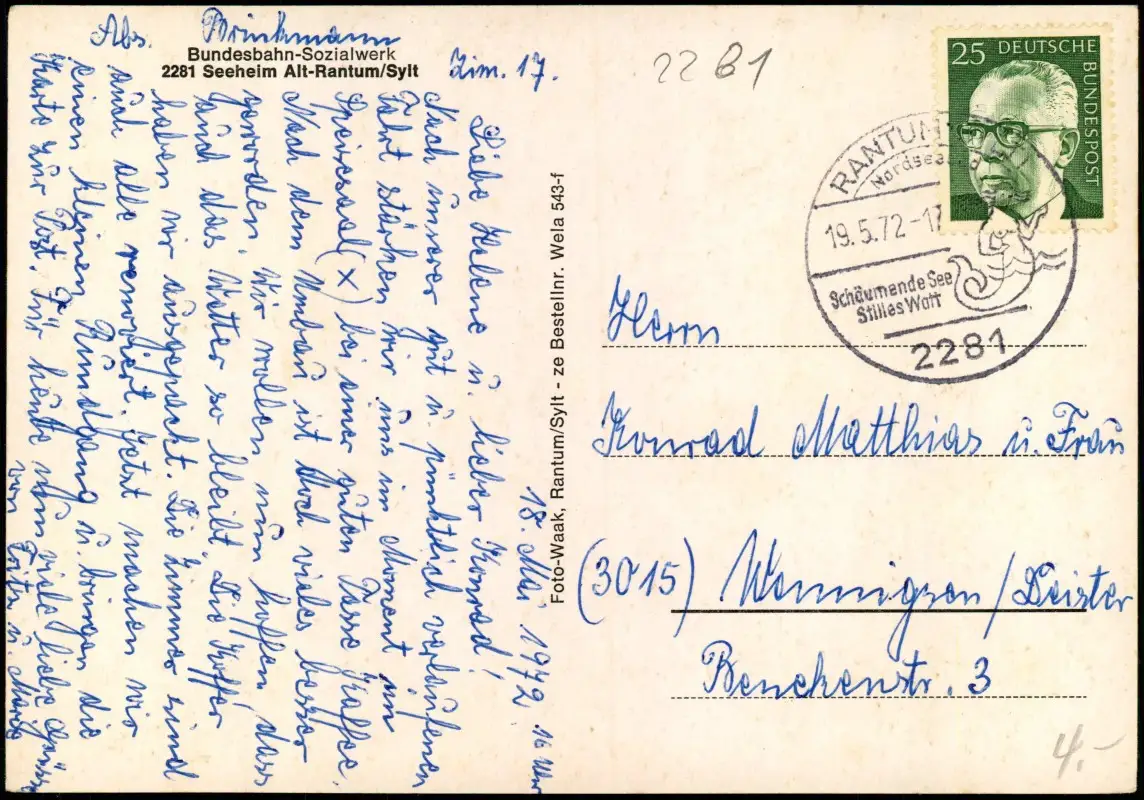 Abs. Brinkmann
Bundesbahn-Sozialwerk
2281 Seeheim Alt-Rantum/Sylt
Zim. 17.
18. Mai 1972 16 Uhr
Liebe Helene u. lieber Konrad!
Nach unserer gut u. pünktlich verlaufenen
Fahrt stärken wir uns im Moment im
Speisesaal (x) bei einer guten Tasse Kaffee.
Nach dem Umbau ist doch vieles besser
geworden. Wir wollen nun hoffen, dass
auch das Wetter so bleibt. Die Koffer
haben wir ausgepackt. Die Zimmer sind
auch alle renoviert. Jetzt machen wir
einen kleinen Rundgang u. bringen die
Karte zur Post. Für heute nun viele liebe Grüsse
von Fritz u.
Foto-Waak, Rantum/Sylt - ze Bestellnr. Wela 543-f
2281
25 DEUTSCHE
BUNDESPOST
RANTUM
Nordsee
19.5.72-17
Schäumende See
Stilles Watt
2281
Herrn
Konrad Matthias u. Frau
(3015) Wennigsen/Deister
Benckenstr. 3
4.-